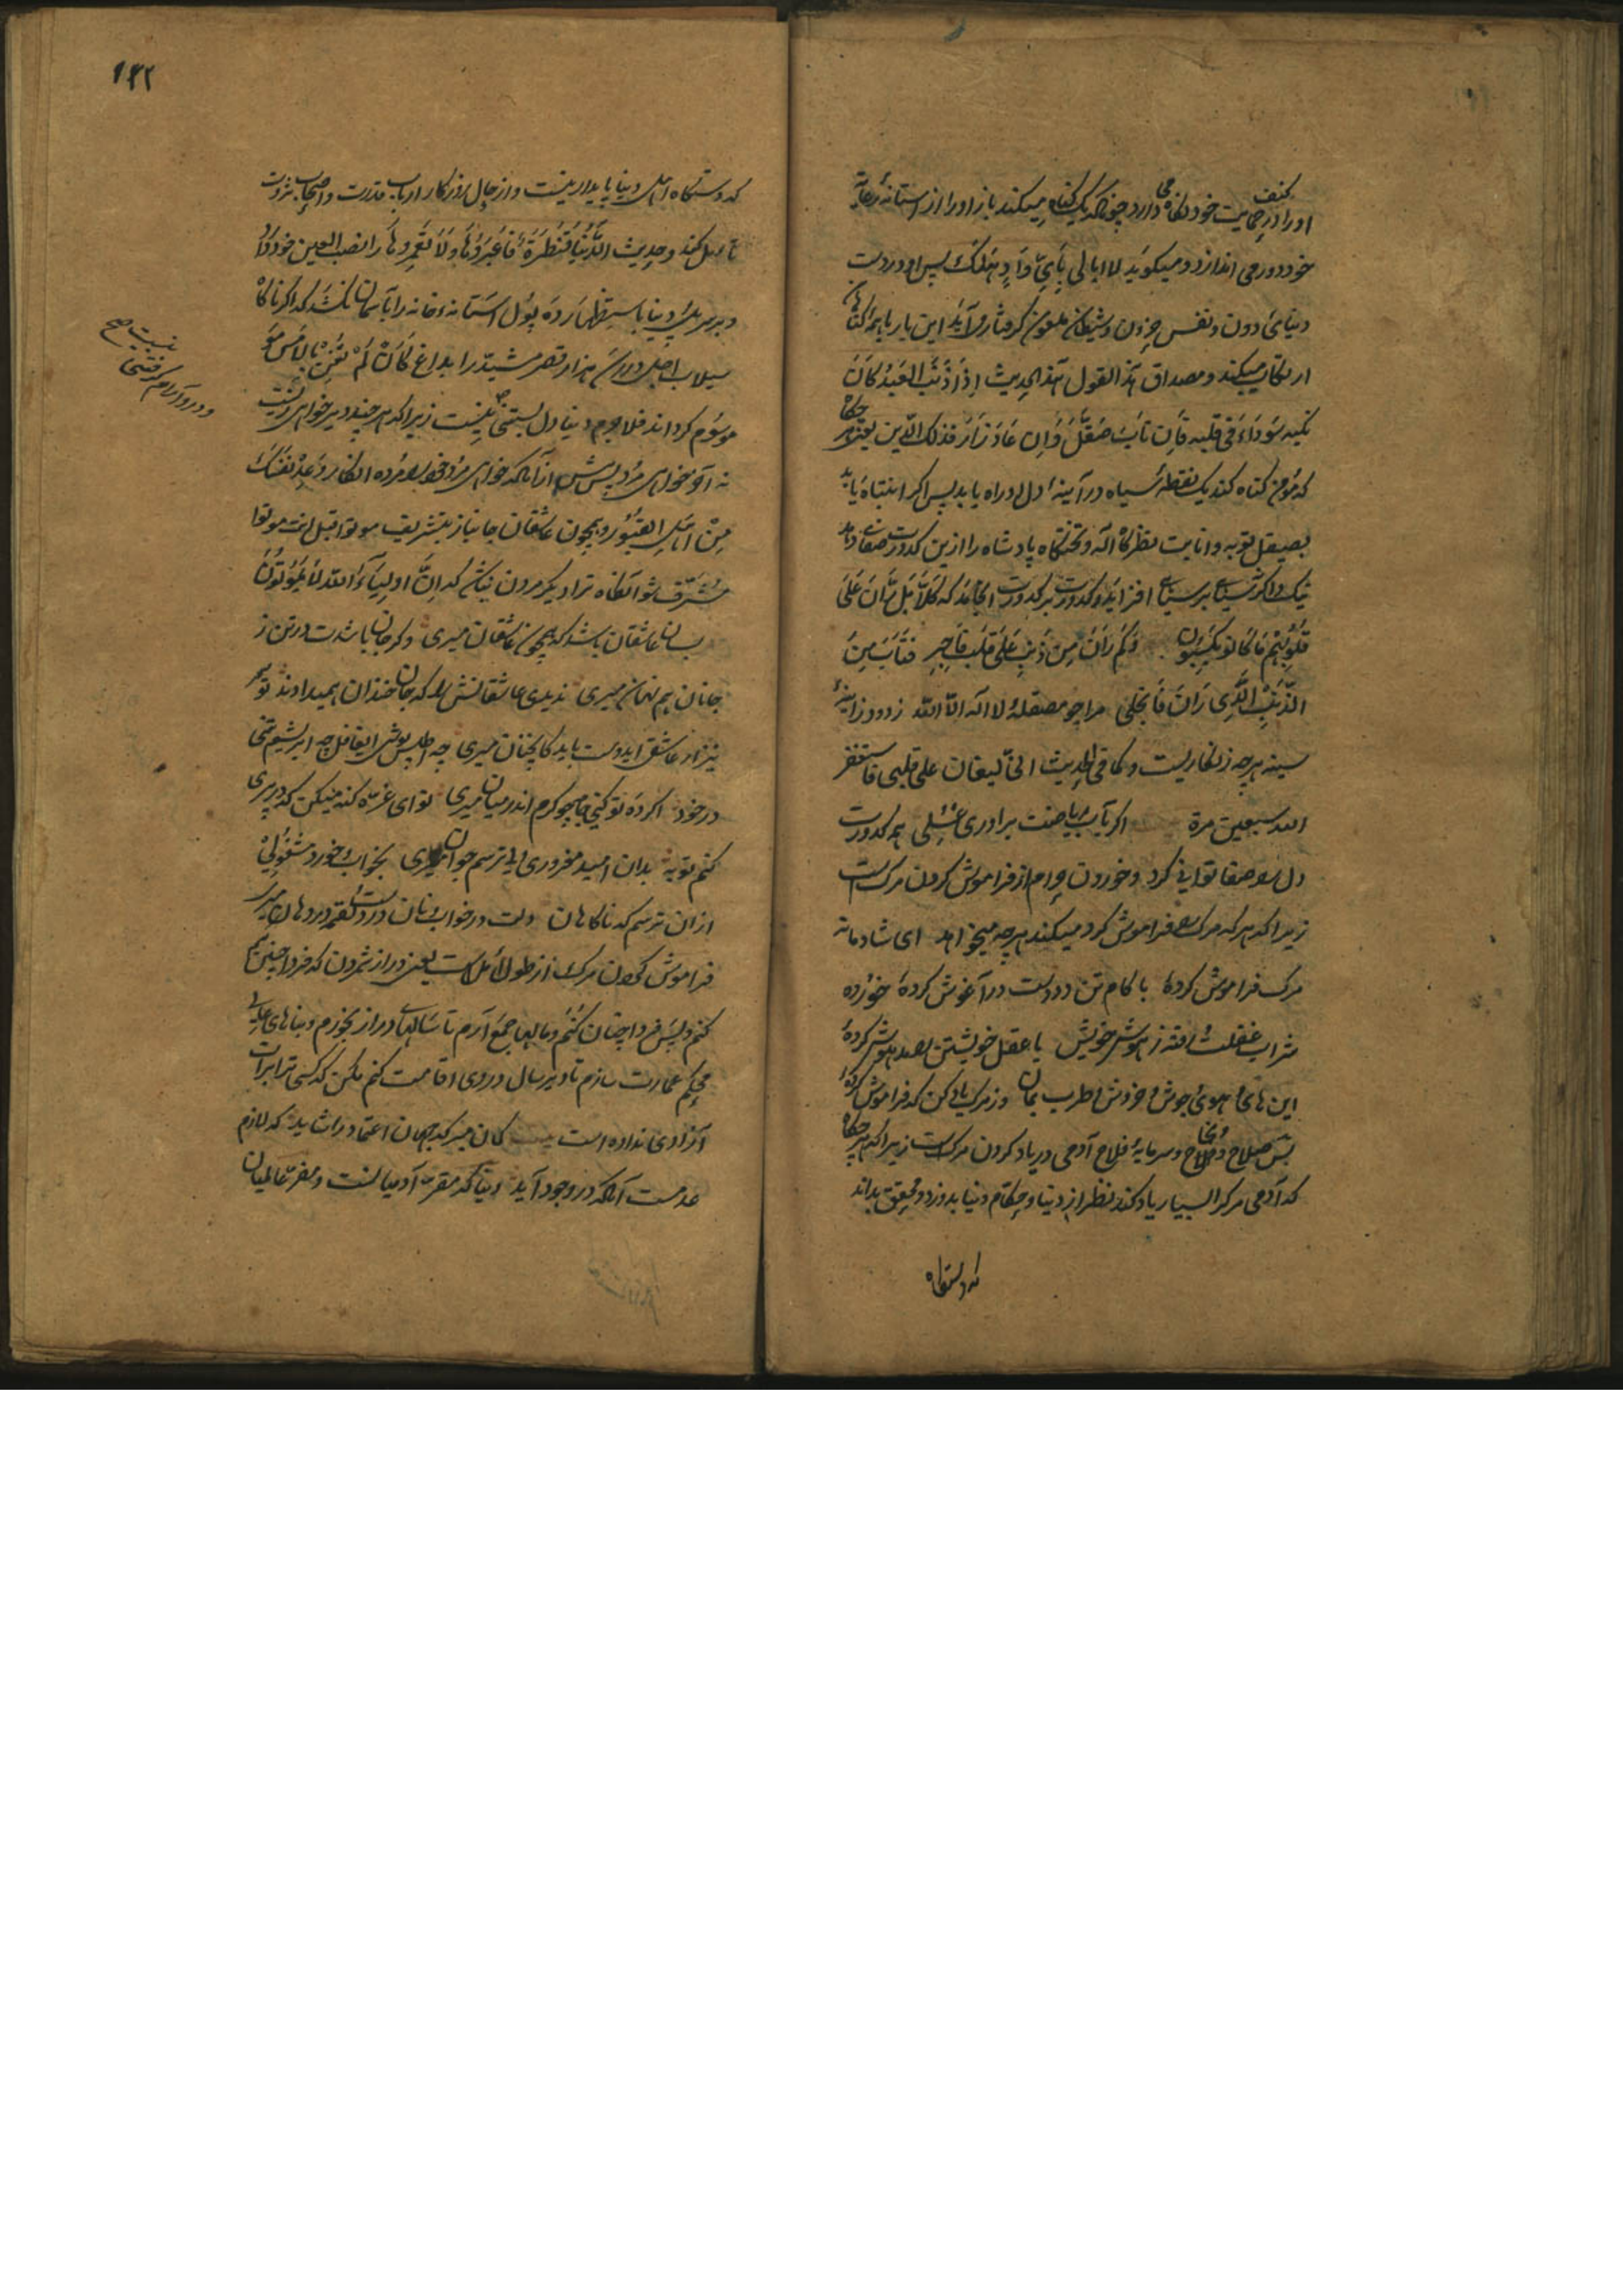 اورا در کنف حمایت خود نکاه می دارد چونکه یک کناه میکند باز اورا از استانهٔ
خود دور می اندازد و میکوید لا ابالی بای واد هلک پس او در دست
دنیای دون و نفس حرون و شیطان ملعون کرفتار می آید این بار باهمه کناها
ارتکاب میکند و مصداق هذا القول هذا لحدیث اِذَا ذْنَبَ العَبْدُ کَانَ
نکتة سَوْدَاءَ فی قلبه فَاِن تابَ صُقّلَ وَاِن عَادَ زَادَ فذلک الرین یعنی هر چکاه
که مؤمن کناه کند یک نقطهٔ سیاه در آینهٔ دل او راه یابد پس اکر انتباه یابد
بصیقل توبه و انابت نظرکاه اله و تختکاه پادشاه را ازین کدورت صفا دهد
نیک و اکرنه سیاهی بر سیاهی افزاید و کدورت بر کدورت انجامد که کَلاَّ بَل رَانَ عَلَی
قُلُوبِهِم مَا کانُو یَکسِبُون وَکَم رَانَ مِن ذَنبٍ عَلَی قَلبِ فَاجِرٍ فتَابَ مِنَ
الذَّنبِ الَّذِی رَانَ فَانجلی مرا چو مصقلهٔ لا اله الا الله زدود زاینهٔ
سینه هرچه زنکاریست و کما فی الحدیث انی لیغان علی قلبی فاستغفر
الله سبعین مرة اکر بآب ریاضت برآوری غسلی همه کدورت
دل را صفا توانی کرد و خوردن حرام از فراموش کردن مرک است
زیراکه هرکه مرک را فراموش کرد میکند هرچه میخواهد ای شادمانه
مرک فراموش کردهٔ با کام تن دو دست در آغوش کردهٔ خوزده
شراب غفلت افته ز هوش خویش یا عقل خویشتن بصد هوش کردهٔ
این های هوی جوش و خروش و طرب بمان وز مرک یاد کن که فراموش کردهٔ
بس صلاح و نجاح و سرمایهٔ فلاح آدمی در یاد کردن مرک است زیراکه هر چکاه
که آدمی مرک را بسیار یاد کند نظر از دنیا و حکام دنیا بدوزد و محقق بداند
که دستکاه
۱۳۲
که دستکاه اهل دنیا پایدار نیست و از حال روزکار ارباب قدرت و اصحاب ثروت
تأمل کند و حدیث الدُّنْیَا قَنْطَرَةٌ فَاعْبُرُوْهَا وَلاَ تَعْمُرُوهَا را نصب العین خود
و بر سر پل دنیا باستظهار ده پول استانه خانه را بآسمان نکشد که اکر ناکاه
سیلاب اجل در رسد هزار قصر مشید را بداغ کَاَنْ لَمْ تَغْنَ بِالاَمْسِ
موسوم کرداند فلاجرم دنیا دل بستنی نیست زیراکه هر چند دیر خواهی زیست
بنسبت صح
و در و آرام کرفتنی
نه آخر خواهی مرد پس پیش ازآنکه خواهی مرد خود را مرده انکار وَعِدْ نَفْسَکَ
مِنْ اَهْلِ القُبُوْرِ و همچون عاشقان جانباز بتشریف موتوا قبل انت موتوا
مشرّف شو آنکاه ترا دیکر مردن نباشد که اِنَّ اولِیَآءَ الله لاَ یَمُوتُوْنَ
بسان عاشقان باشد که همچون عاشقان میری و کر جان باشدت در تن ز
جانان هم نهان میری ندیدی عاشقانش را که جان خندان همیدادند تو هم
نیز ار عاشقی ایدوست باید کانچنان میری چه اطلس پوشی ایغافل چه ابریشم تنی
در خود اکر ده تو کنی جا چو کرم اندر میان میری تو ای غرّه کنه میکن که در پیری
کنم توبه بدان امید مغروری ولی ترسم جوان میری بخواب و خورد مشغولی
ازان ترسم که ناکاهان دلت در خواب و نان در دست و لقمه در دهان میری
فراموش کردن مرک از طول الامل است یعنی دراز شمردن که فردا چنین
کنم و پس فردا چنان کُنَمْ و مالها جمع آرم تا سالهای دراز بخورم و بناهای عالی
محکم عمارت سازم تا دیر سال در وی اقامت کنم مکن که کسی ترا برات
آزادی نداده است بیت کان مبر که جهان اعتماد را شاید که لازم
عدمست آنکه در وجود آید دنیا که مقرّ آدمیانست و مفرّ عالمیان